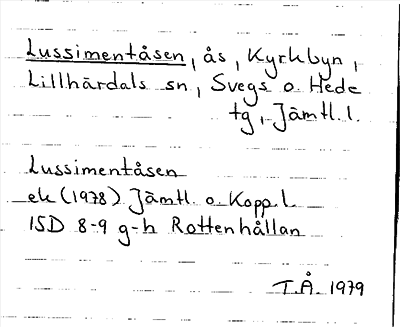 Lussimentåsen, ås, Kyrkbyn,
Lillhärdals sn, Svegs o. Hede
tg, Jämtl. l.
Lussimentåsen
ek (1978) Jämtl. o. Kopp. l.
15D 8-9 g-h Rottenhållan
T.Å. 1979